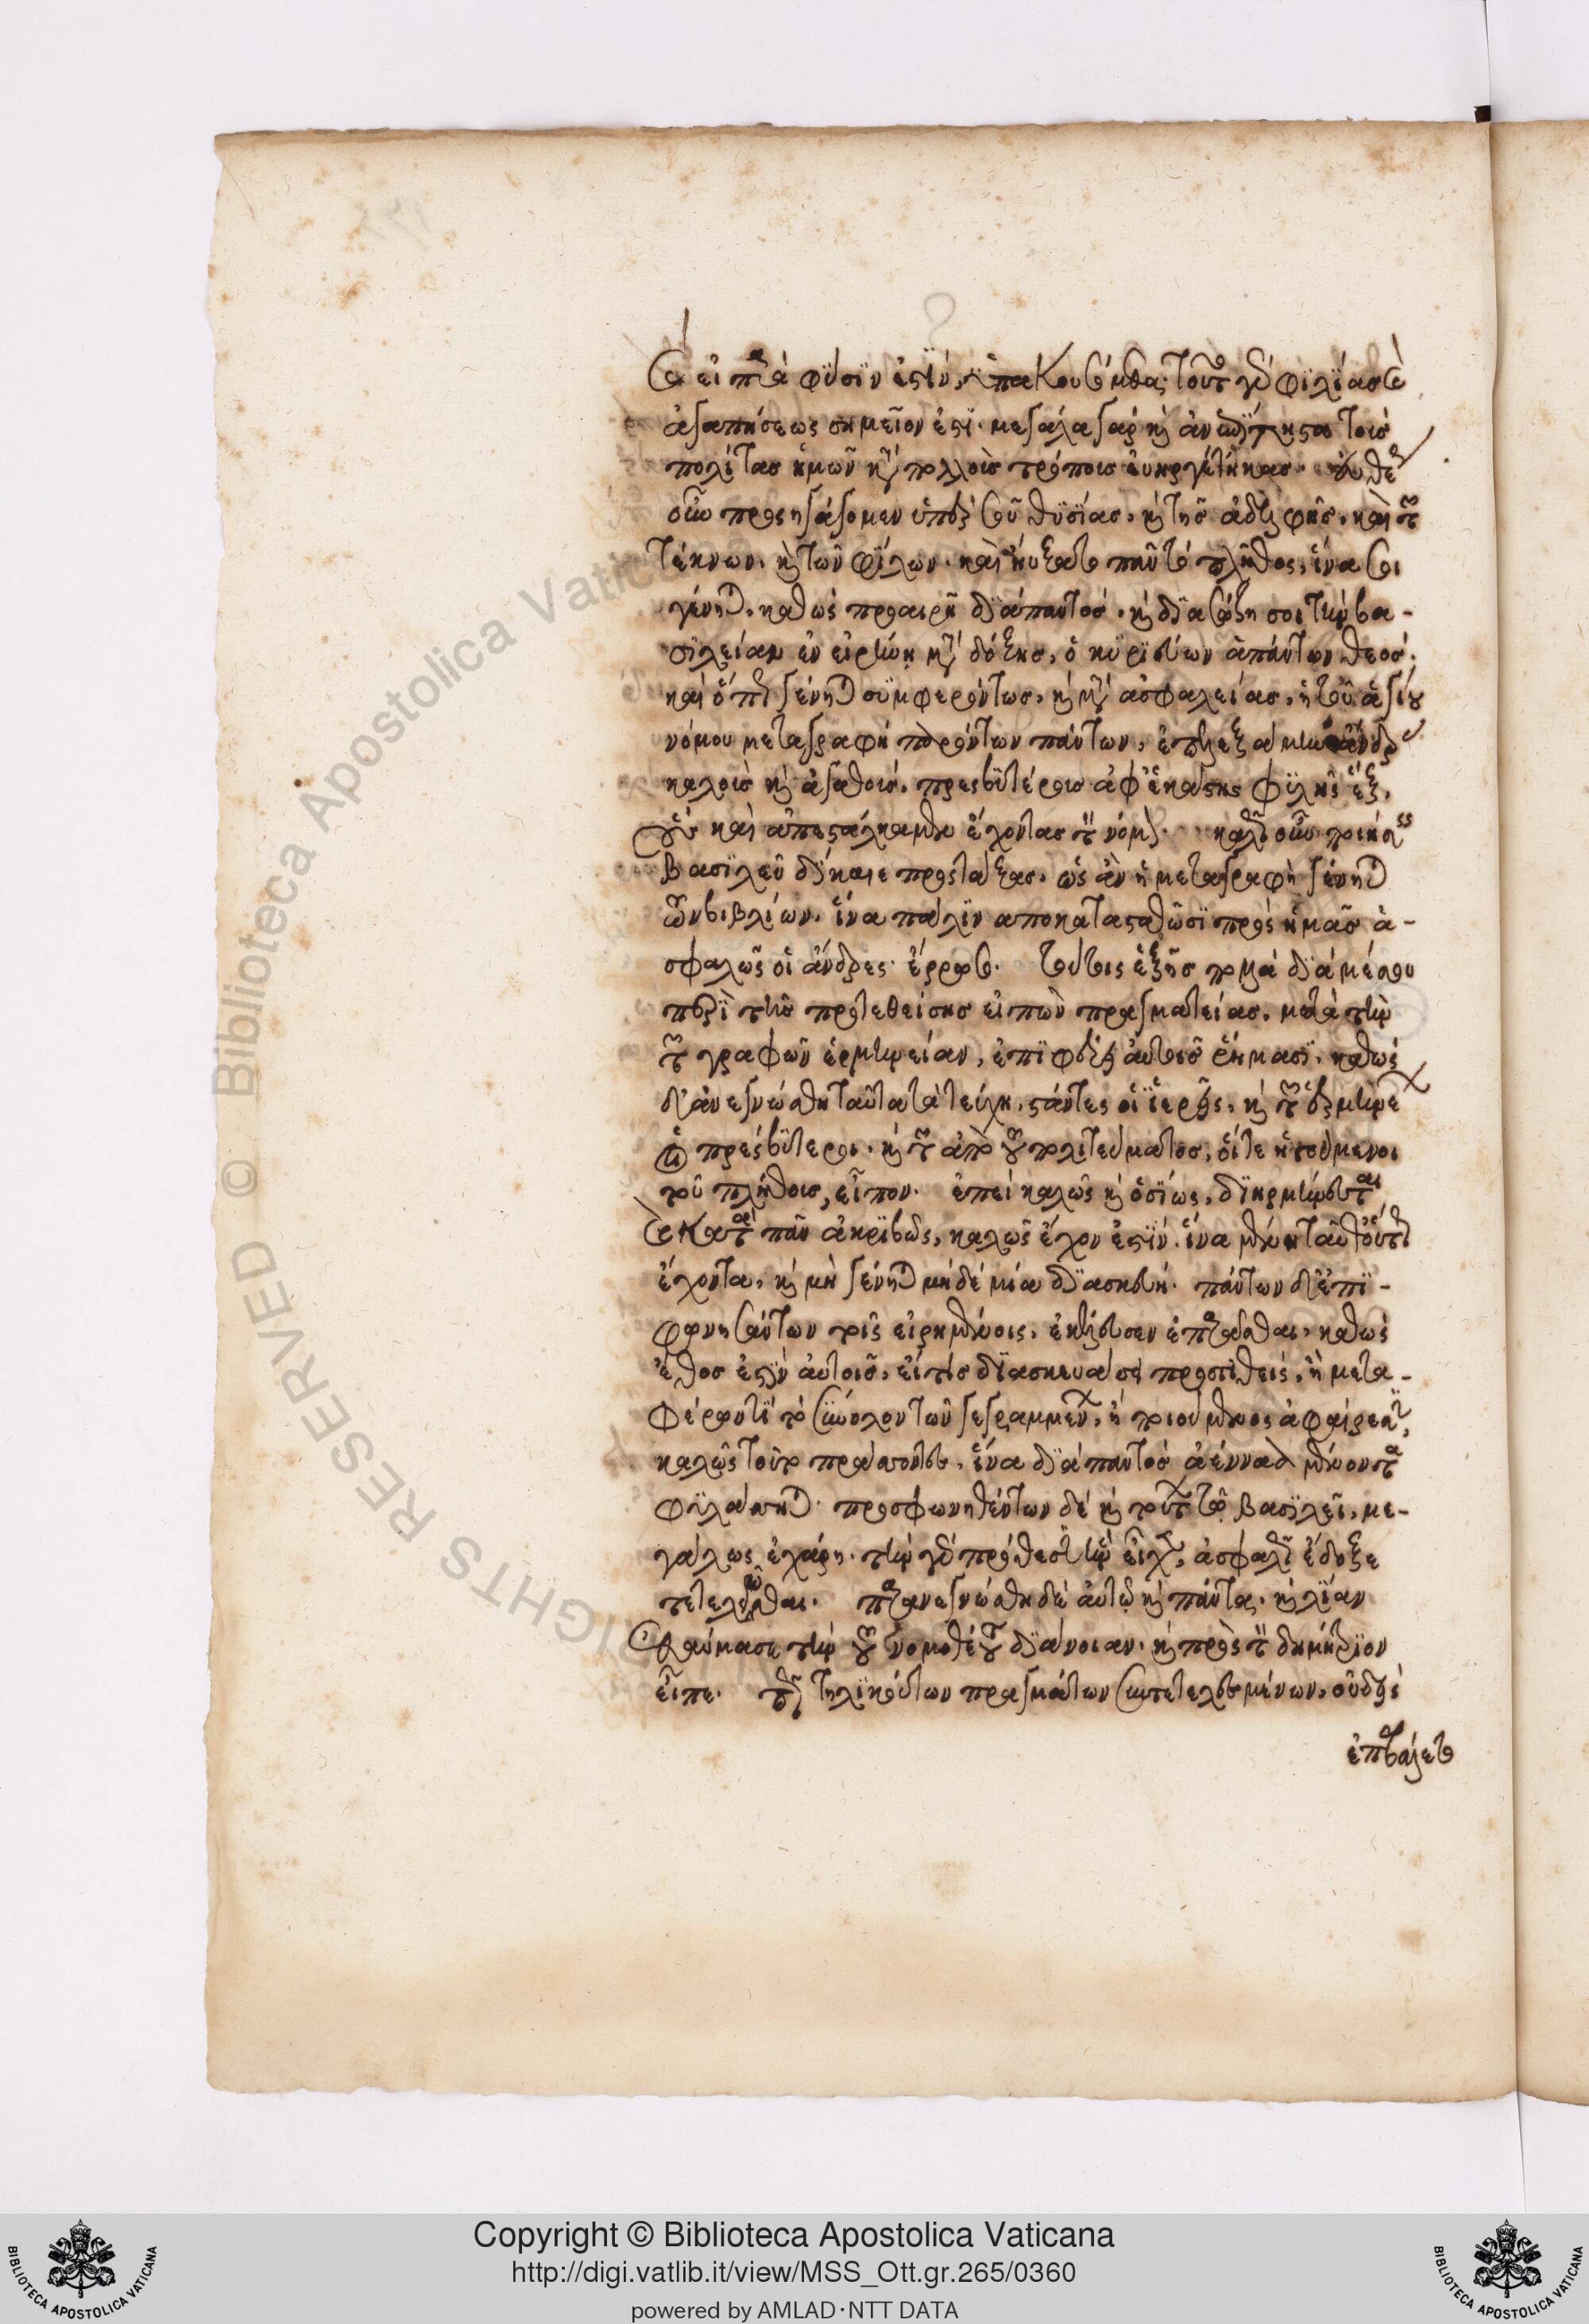 καὶ εἰ παρὰ φύσιν ἐστὶν, ὑπακουσόμεθα· τοῦτο γὰρ φιλίας καὶ
ἀγαπήσεως σημεῖον ἐστί· μεγάλα γὰρ καὶ ἀνεπίληστα τοὺς
πολίτας ἡμῶν κατὰ πολλοὺς τρόπους εὐηργέτηκας· εὐθέως
οὖν προσηγάγομεν ὑπὲρ σοῦ θυσίας, καὶ τῆς ἀδελφῆς, καὶ τῶν
τέκνων, καὶ τῶν φίλων· καὶ ηὔξατο πᾶν τὸ πλῆθος, ἵνα σοι
γένηται, καθὼς προαιρῇ διαπαντός, καὶ διασώζῃ σοι τὴν βα-
σιλείαν ἐν εἰρήνῃ μετὰ δόξης, ὁ κυριεύων ἁπάντων θεός·
καὶ ὅπως γένηται συμφερόντως, καὶ μετὰ ἀσφαλείας, ἡ τοῦ ἁγίου
νόμου μεταγραφή· παρόντων πάντων, ἐπελεξάμην ἄνδρας
καλοὺς καὶ ἀγαθοὺς, πρεσβυτέρους ἀφ' ἑκάστης φυλῆς ἕξ,
οὓς καὶ ἀπεστάλκαμεν ἔχοντας τὸν νόμον· καλῶς οὖν ποιήσεις
βασιλεῦ δίκαιε προστάξας, ὡς ἂν ἡ μεταγραφὴ γένηται
τῶν βιβλίων, ἵνα πάλιν ἀποκατασταθῶσι πρὸς ἡμᾶς ἀ-
σφαλῶς οἱ ἄνδρες· ἔρρωσο· τούτοις ἑξῆς πολλὰ διὰ μέσου
περὶ τῆς προτεθείσης εἰπὼν πραγματείας, μετὰ τὴν
τῶν γραφῶν ἑρμηνείαν, ἐπιφέρει αὐτοῖς ῥήμασι, καθὼς
δ' ἀνεγνώσθη ταῦτα τὰ τεύχη, στάντες οἱ ἱερεῖς, καὶ τῶν ἑρμηνέων
οἱ πρεσβύτεροι, καὶ τῶν ἀπὸ τοῦ πολιτεύματος, οἵ τε ἡγούμενοι
τοῦ πλήθους, εἶπον· ἐπεὶ καλῶς καὶ ὁσίως, διηρμήνευται
καὶ κατὰ πᾶν ἀκριβῶς, καλῶς ἔχον ἐστὶν ἵνα μένῃ ταῦθ' οὕτως
ἔχοντα, καὶ μὴ γένηται μηδεμία διασκευή· πάντων δ' ἐπι-
φωνησάντων τοῖς εἰρημένοις, ἐκέλευσεν ἐπαράσασθαι, καθὼς
ἔθος ἐστὶν αὐτοῖς, εἴ τις διασκευάσει προστιθεὶς, ἢ μετα-
φέρων τι τὸ σύνολον τῶν γεγραμμένων, ἢ ποιούμενος ἀφαίρεσιν,
καλῶς τοῦτο πράσσοντες, ἵνα διαπαντὸς ἀένναα μένοντα
φυλάσσηται· προσφωνηθέντων δὲ καὶ τούτων τῷ βασιλεῖ, με-
γάλως ἐχάρη· τὴν γὰρ πρόθεσιν ἣν εἶχεν, ἀσφαλῶς ἔδοξε
τετελειῶσθαι· παρανεγνώσθη δὲ αὐτῷ καὶ πάντα, καὶ λίαν
ἐθαύμασε τὴν τοῦ νομοθέτου διάνοιαν· καὶ πρὸς τὸν δημήτριον
εἶπε· πῶς τηλικούτων πραγμάτων συντετελεσμένων, οὐδεὶς
ἐπεβάλετο